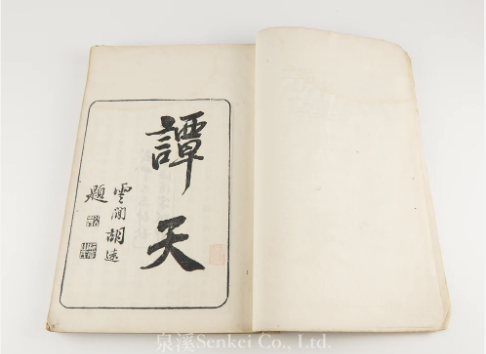 譚天
雲間胡遠
題
泉溪Senkei Co., Ltd.